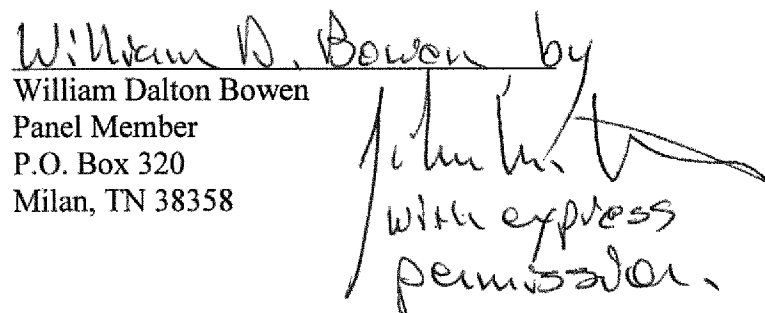 William D. Bowen by
William Dalton Bowen
Panel Member
P.O. Box 320
Milan, TN 38358
John
with express
permission.